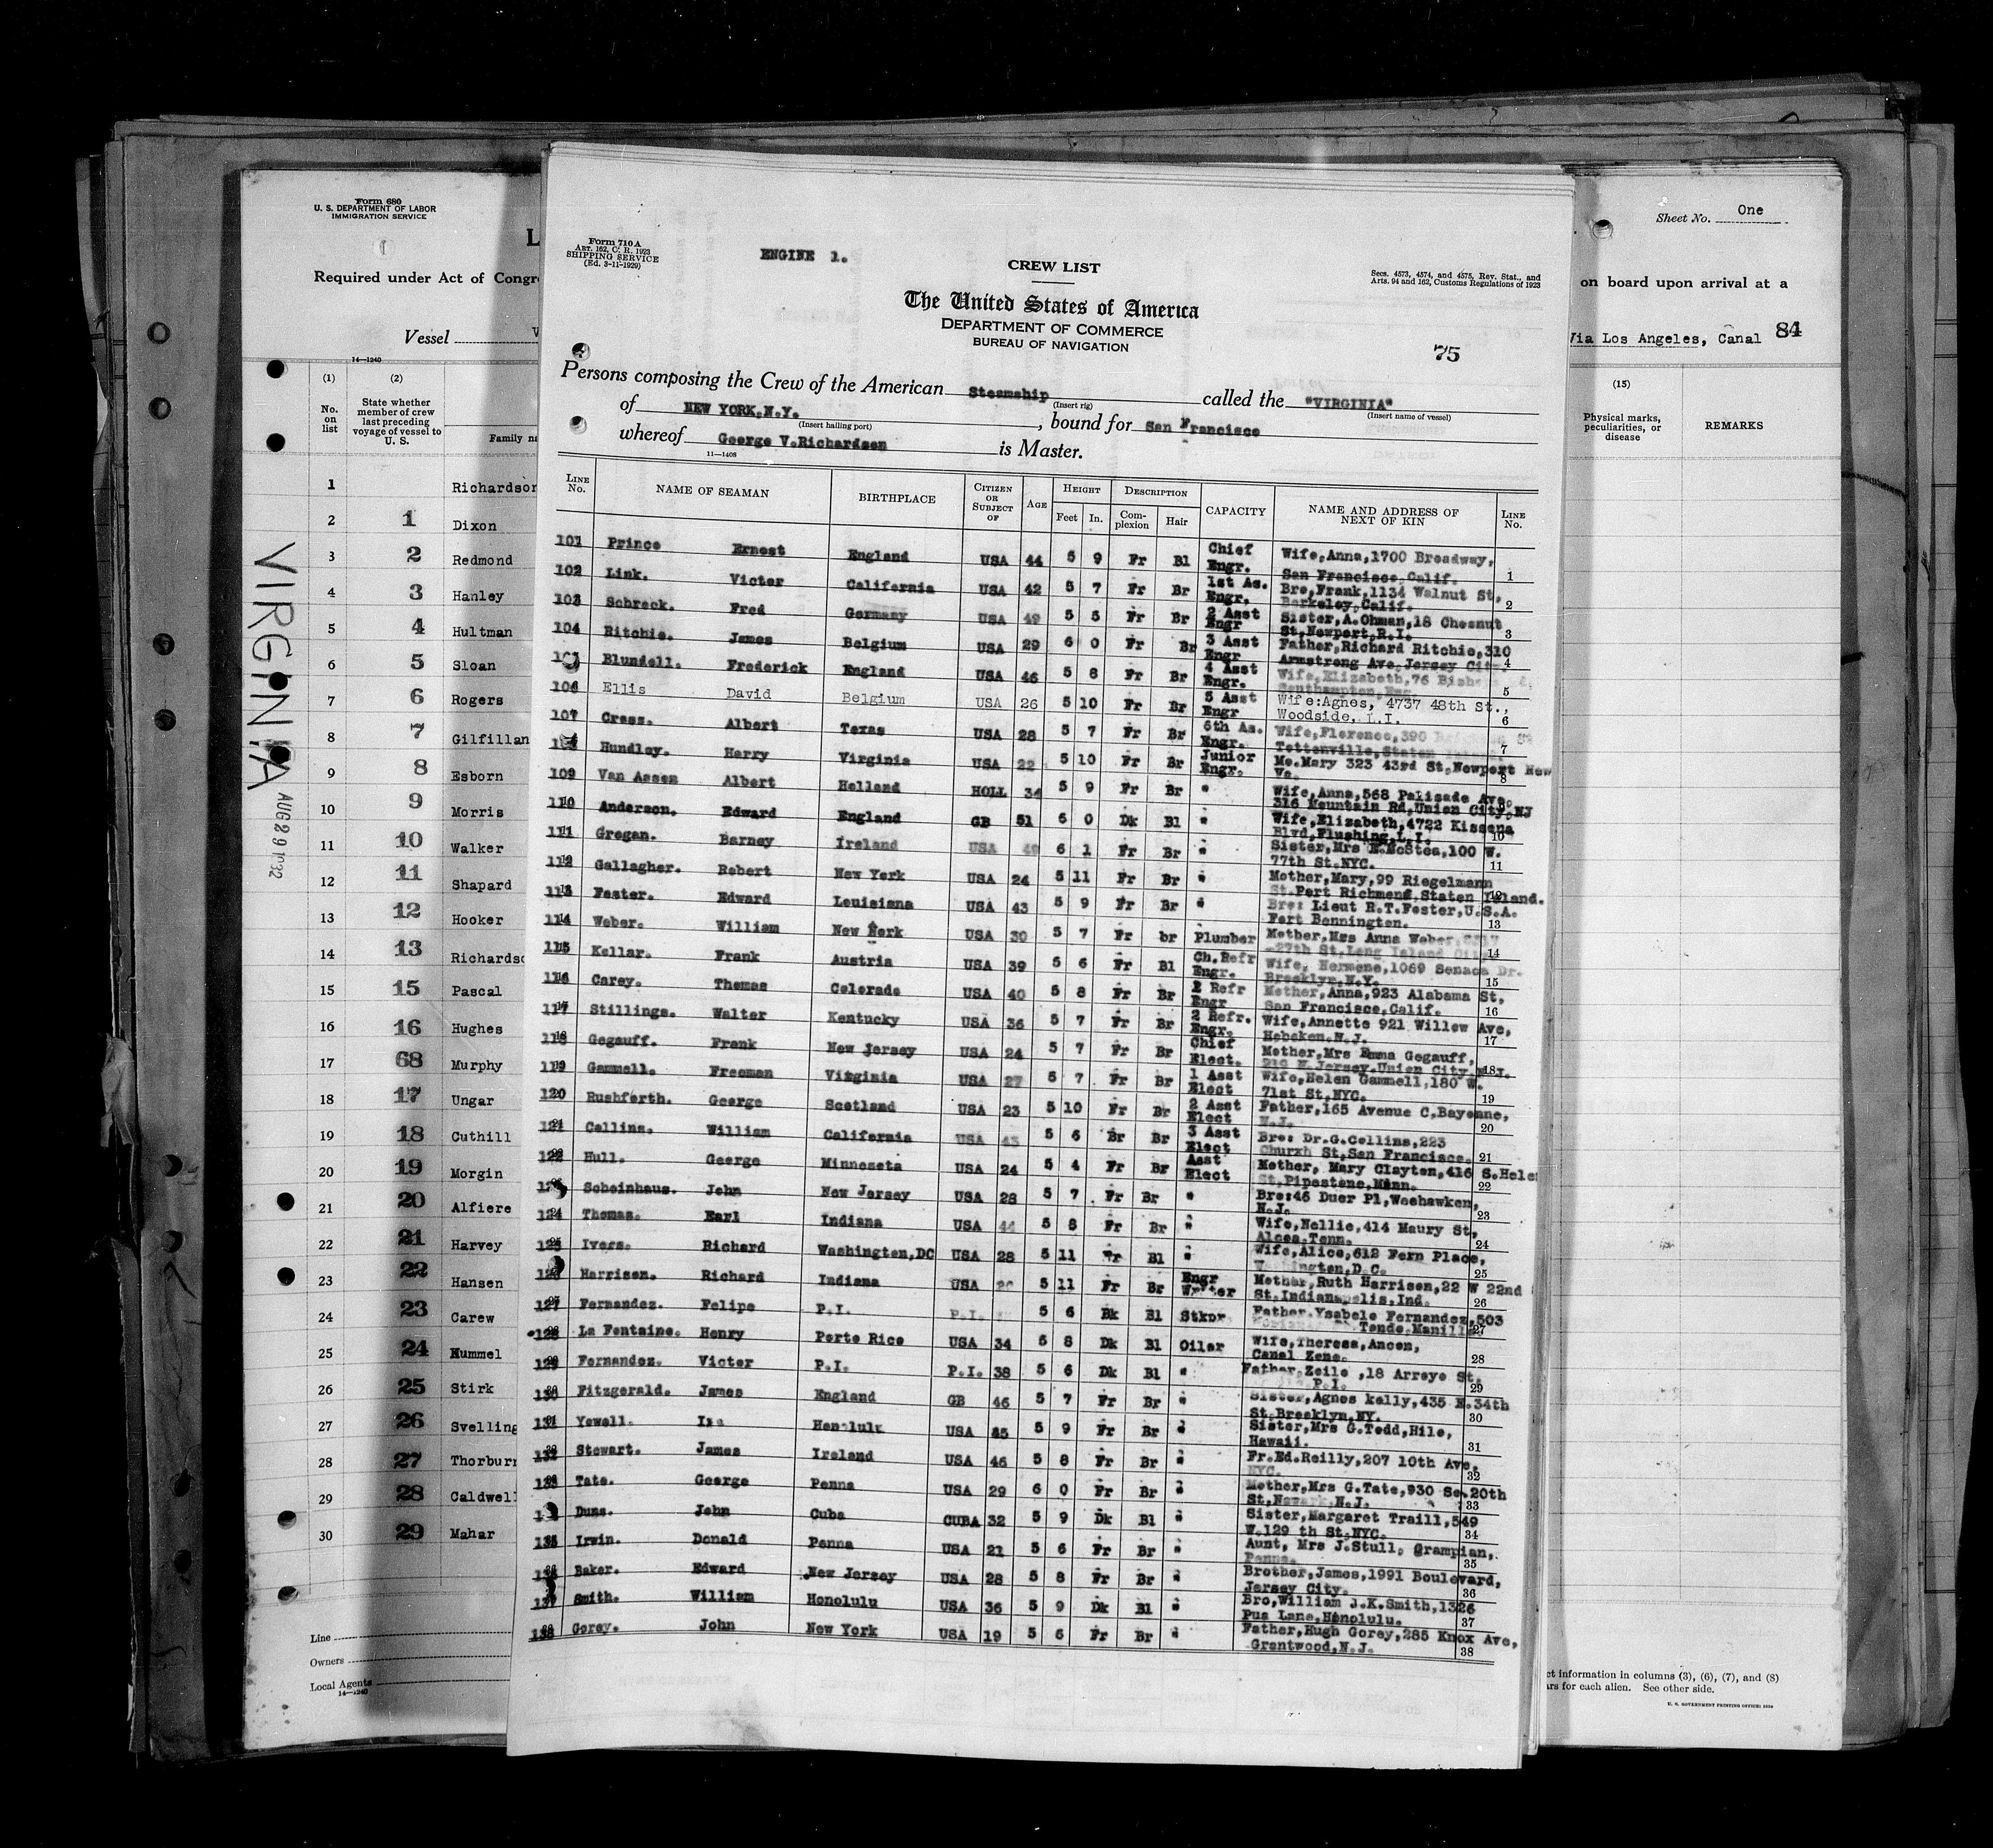 Form 680
U. S. DEPARTMENT OF LABOR
IMMIGRATION SERVICE
Required under Act of Congr
Vessel
14—1240
(1) (2)
No. on list
State whether member of crew last preceding voyage of vessel to U. S.
Family na
1 Richardson
2 1 Dixon
3 2 Redmond
4 3 Hanley
5 4 Hultman
6 5 Sloan
7 6 Rogers
8 7 Gilfillan
9 8 Esborn
10 9 Morris
11 10 Walker
12 11 Shapard
13 12 Hooker
14 13 Richardso
15 15 Pascal
16 16 Hughes
17 68 Murphy
18 17 Ungar
19 18 Cuthill
20 19 Morgin
21 20 Alfiere
22 21 Harvey
23 22 Hansen
24 23 Carew
25 24 Hummel
26 25 Stirk
27 26 Svelling
28 27 Thorburn
29 28 Caldwell
30 29 Mahar
Line
Owners
Local Agents
14—1240
VIRGINIA
AUG 29 1932
Form 710 A
ART. 162, C. R. 1923
SHIPPING SERVICE
(Ed. 3-11-1929)
ENGINE 1.
CREW LIST
Secs. 4573, 4574, and 4575, Rev. Stat., and
Arts. 94 and 162, Customs Regulations of 1923
The United States of America
DEPARTMENT OF COMMERCE
BUREAU OF NAVIGATION
75
Persons composing the Crew of the American Steamship called the "VIRGINIA"
(Insert rig) (Insert name of vessel)
of NEW YORK.N.Y. , bound for San Francisco
(Insert hailing port)
whereof George V.Richardson is Master.
11—1408
LINE No. NAME OF SEAMAN BIRTHPLACE CITIZEN OR SUBJECT OF AGE HEIGHT Feet In. DESCRIPTION Complexion Hair CAPACITY NAME AND ADDRESS OF NEXT OF KIN LINE No.
101 Prince Ernest England USA 44 5 9 Fr Bl Chief Engr. Wife,Anna,1700 Broadway, San Francisco,Calif. 1
102 Link. Victor California USA 42 5 7 Fr Br 1st As. Engr. Bro,Frank,1134 Walnut St, Berkeley,Calif. 2
103 Schreck. Fred Germany USA 49 5 5 Fr Br 2 Asst Engr Sister,A.Ohman,18 Chesnut St,Newport,R.I. 3
104 Ritchie. James Belgium USA 29 6 0 Fr Br 3 Asst Engr Father,Richard Ritchie,310 Armstrong Ave,Jersey City. 4
Blundell. Frederick England USA 46 5 8 Fr Br 4 Asst Engr. Wife,Elizabeth,76 Southampton,Eng. 5
106 Ellis David Belgium USA 26 5 10 Fr Br 5 Asst Engr Wife:Agnes, 4737 48th St., Woodside, L.I. 6
107 Cress. Albert Texas USA 28 5 7 Fr Br 6th As. Engr. Wife,Florence,390 Tottenville,Staten 7
Hundley. Harry Virginia USA 22 5 10 Fr Br Junior Engr. Mo.Mary 323 43rd St,Newport New Va. 8
109 Van Assen Albert Holland HOLL 34 5 9 Fr Br " Wife,Anna,568 Palisade Ave, 316 Mountain Rd,Union City,NJ
110 Anderson. Edward England GB 51 6 0 Dk Bl " Wife,Elizabeth,4722 Kissena Blvd,Flushing,L.I. 10
111 Grogan. Barney Ireland USA 49 6 1 Fr Br " Sister,Mrs E.McStea,100 W. 77th St.NYC. 11
112 Gallagher. Robert New York USA 24 5 11 Fr Br " Mother,Mary,99 Riegelmann St.Port Richmond,Staten Island. 12
113 Foster. Edward Louisiana USA 43 5 9 Fr Br " Bro: Lieut R.T.Foster,U.S.A. Fort Bennington. 13
114 Weber. William New York USA 30 5 7 Fr br Plumber Mother,Mrs Anna Weber, 27th St,Long Island City 14
115 Kellar. Frank Austria USA 39 5 6 Fr Bl Ch.Refr Engr. Wife, Hermene,1069 Seneca Dr. Brooklyn,N.Y. 15
116 Carey. Thomas Colorado USA 40 5 8 Fr Br 2 Refr Engr Mother,Anna,923 Alabama St, San Francisco,Calif. 16
117 Stillings. Walter Kentucky USA 36 5 7 Fr Br 2 Refr. Engr. Wife,Annette 921 Willow Ave, Hoboken.N.J. 17
118 Gegauff. Frank New Jersey USA 24 5 7 Fr Br Chief Elect. Mother,Mrs Emma Gegauff, 210 N.Jersey.Union City,N.J. 18
119 Gammell. Freeman Virginia USA 27 5 7 Fr Br 1 Asst Elect Wife,Helen Gammell,180 W. 71st St,NYC. 19
120 Rushforth. George Scotland USA 23 5 10 Fr Br 2 Asst Elect Father,165 Avenue C,Bayonne, N.J. 20
121 Collins. William California USA 43 5 6 Br Br 3 Asst Elect Bro: Dr.G.Collins,223 Churxh St,San Francisco. 21
122 Hull. George Minnesota USA 24 5 4 Fr Br Asst Elect Mother, Mary Clayton,416 S.Hele St,Pipestone,Minn. 22
Scheinhaus. John New Jersey USA 28 5 7 Fr Br " Bro:46 Duer Pl,Weehawken, N.J. 23
124 Thomas. Earl Indiana USA 44 5 8 Fr Br " Wife,Nellie,414 Maury St, Alcoa.Tenn. 24
125 Ivers. Richard Washington,DC USA 28 5 11 Fr Bl " Wife,Alice,612 Fern Place, Washington,D.C. 25
126 Harrison. Richard Indiana USA 5 11 Fr Br Engr Writer Mother,Ruth Harrison,22 W 22nd St.Indianapolis,Ind. 26
127 Fernandez. Felipe P.I. P.I. 5 6 Bk Bl Stkpr Father,Ysabelo Fernandez,503 Tondo.Manilla 27
128 La Fontaine. Henry Porto Rico USA 34 5 8 Dk Bl Oiler Wife,Theresa,Ancon, Canal Zone. 28
129 Fernandez. Victor P.I. P.I. 38 5 6 Dk Bl " Father,Zoilo ,18 Arroyo St, P.I. 29
130 Fitzgerald. James England GB 46 5 7 Fr Br " Sister,Agnes kelly,435 E.34th St.Brooklyn,NY. 30
131 Yowell. Ira Honolulu USA 45 5 9 Fr Br " Sister,Mrs G.Todd,Hilo, Hawaii. 31
132 Stewart. James Ireland USA 46 5 8 Fr Br " Fr.Ed.Reilly,207 10th Ave, NYC. 32
133 Tate. George Penna USA 29 6 0 Fr Br " Mother,Mrs G.Tate,930 So.20th St,Newark,N.J. 33
Duns. John Cuba CUBA 32 5 9 Dk Bl " Sister,Margaret Traill,549 W.129 th St,NYC. 34
135 Irwin. Donald Penna USA 21 5 6 Fr Br " Aunt, Mrs J.Stull, Grampian, Penna. 35
Baker. Edward New Jersey USA 28 5 8 Fr Br " Brother,James,1991 Boulevard, Jersey City. 36
137 Smith. William Honolulu USA 36 5 9 Dk Bl " Bro,William J.K.Smith,1326 Pua Lane,Honolulu. 37
138 Gorey. John New York USA 19 5 6 Fr Br " Father,Hugh Gorey,285 Knox Ave, Grantwood,N.J. 38
Sheet No. One
on board upon arrival at a
Via Los Angeles, Canal 84
(15)
Physical marks, peculiarities, or disease
REMARKS
ct information in columns (3), (6), (7), and (8)
ars for each alien. See other side.
U. S. GOVERNMENT PRINTING OFFICE: 1929